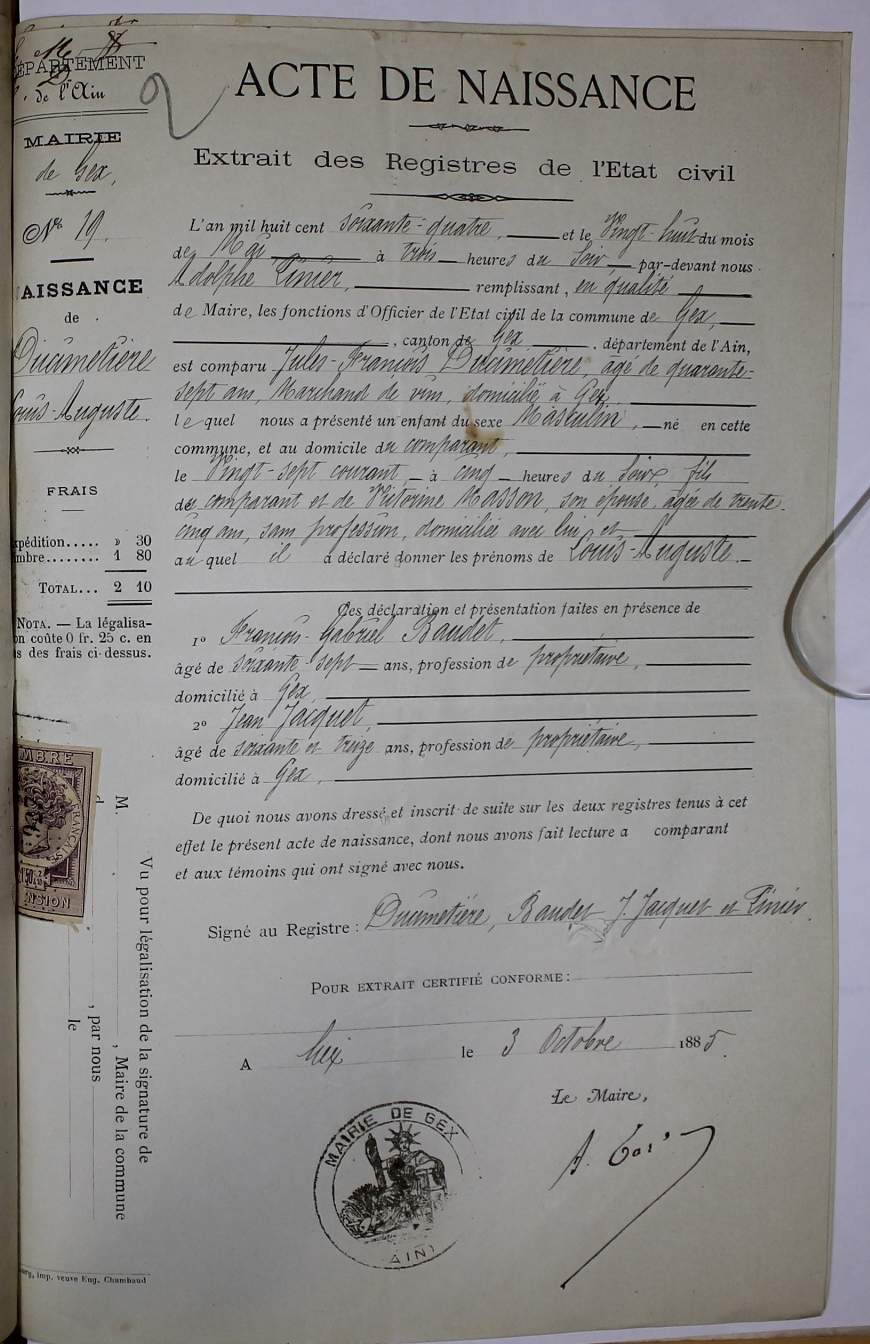 DÉPARTEMENT
de l'Ain
MAIRIE
de Gex,
N° 19.
NAISSANCE
de
Ducimetière
Louis-Auguste.
FRAIS
xpédition..... » 30
mbre........ 1 80
TOTAL... 2 10
NOTA. — La légalisa-
on coûte 0 fr. 25 c. en
s des frais ci-dessus.
ACTE DE NAISSANCE
Extrait des Registres de l'Etat civil
L'an mil huit cent soixante-quatre, et le Vingt-huit du mois
de Mai à trois heures du Soir, par-devant nous
Adolphe Linier, remplissant, en qualité
de Maire, les fonctions d'Officier de l'Etat civil de la commune de Gex,
, canton de Gex, département de l'Ain,
est comparu Jules-François Ducimetière, âgé de quarante-
sept ans, Marchand de vin, domicilié à Gex,
lequel nous a présenté un enfant du sexe Masculin, né en cette
commune, et au domicile du comparant,
le Vingt-sept courant, à cinq heures du Soir, fils
du comparant et de Victorine Masson, son épouse, agée de trente-
cinq ans, sans profession, domiciliée avec lui et
auquel il a déclaré donner les prénoms de Louis-Auguste.
Ces déclaration et présentation faites en présence de
1° François-Gabriel Baudet,
âgé de soixante-sept ans, profession de propriétaire,
domicilié à Gex,
2° Jean Jacquet,
âgé de soixante et treize ans, profession de propriétaire,
domicilié à Gex,
De quoi nous avons dressé et inscrit de suite sur les deux registres tenus à cet
effet le présent acte de naissance, dont nous avons fait lecture a comparant
et aux témoins qui ont signé avec nous.
Signé au Registre : Ducimetière, Baudet J. Jacquet et Linier.
POUR EXTRAIT CERTIFIÉ CONFORME :
A Gex le 3 Octobre 1885.
Le Maire,
MAIRIE DE GEX
(AIN)
Vu pour légalisation de la signature de
M.
, Maire de la commune
d
, par nous
le
MBRE
FRANÇAISE
1'50
NSION
ourg, imp. veuve Eug. Chambaud